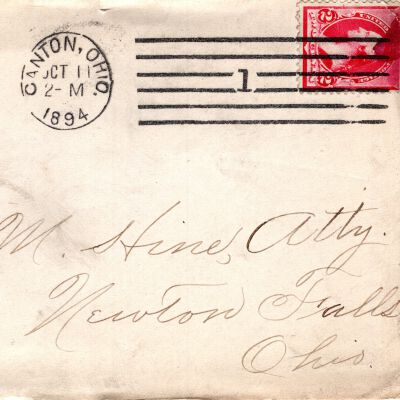 CANTON, OHIO.
OCT 11
2- M
1894
1
M. Hine, Atty.
Newton Falls
Ohio.